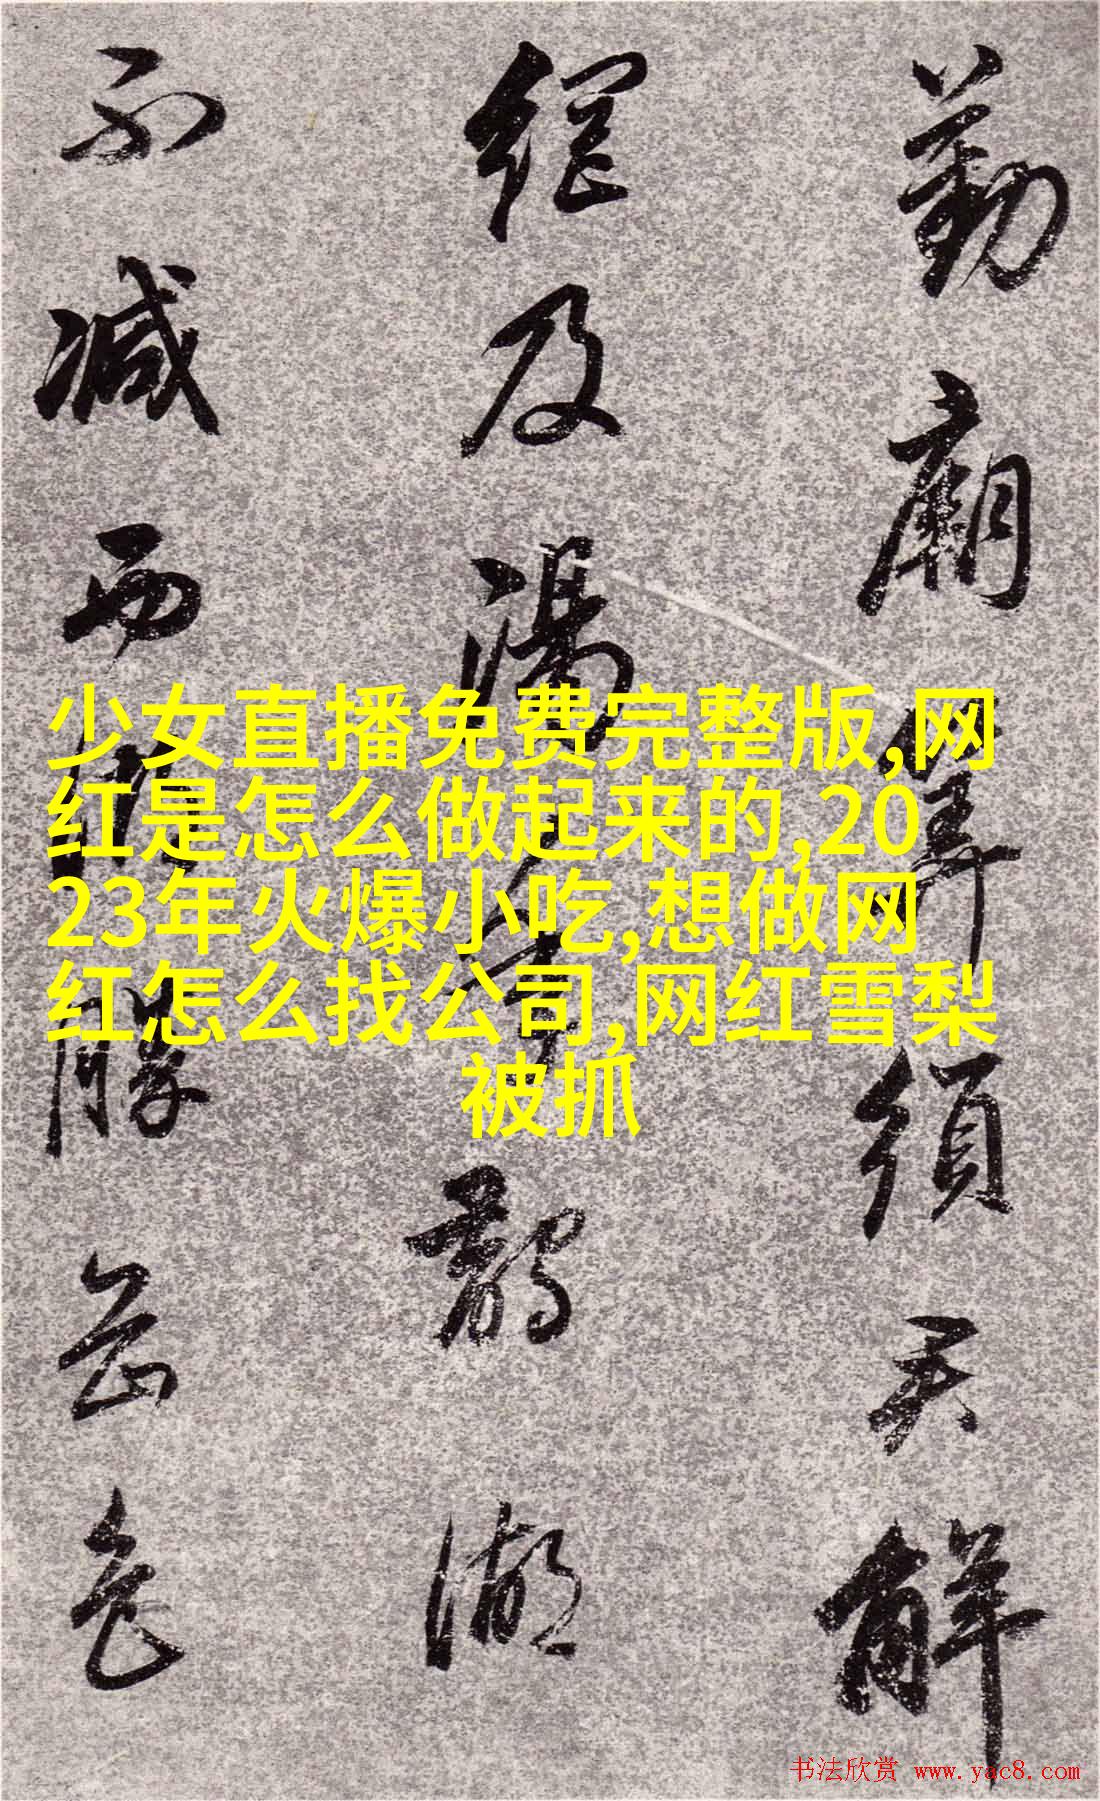 少女直播免费完整版,网
红是怎么做起来的,20
23年火爆小吃,想做网
红怎么找公司,网红雪梨
被抓
勤廟須君解
及湖
不減西勝
书法欣赏 www.yac8.com